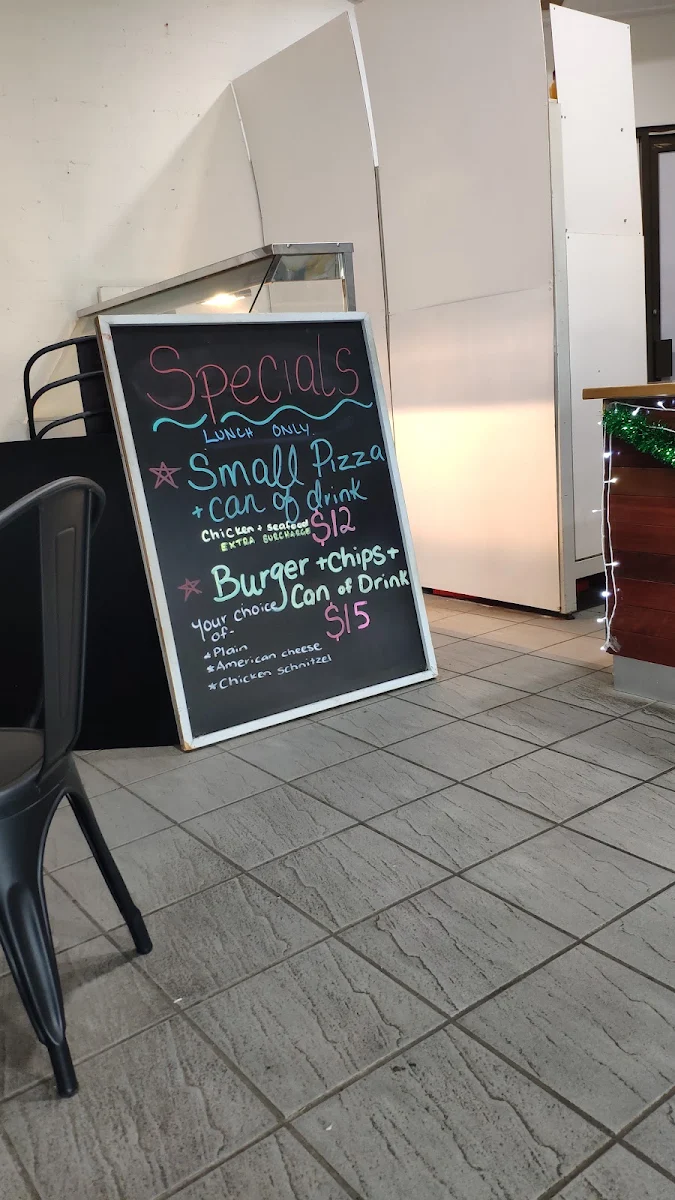 Specials
LUNCH ONLY
Small Pizza
+ can of drink
Chicken + seafood
EXTRA SURCHARGE
$12
Burger + Chips +
Can of Drink
$15
Your choice
of-
Plain
American cheese
Chicken schnitzel